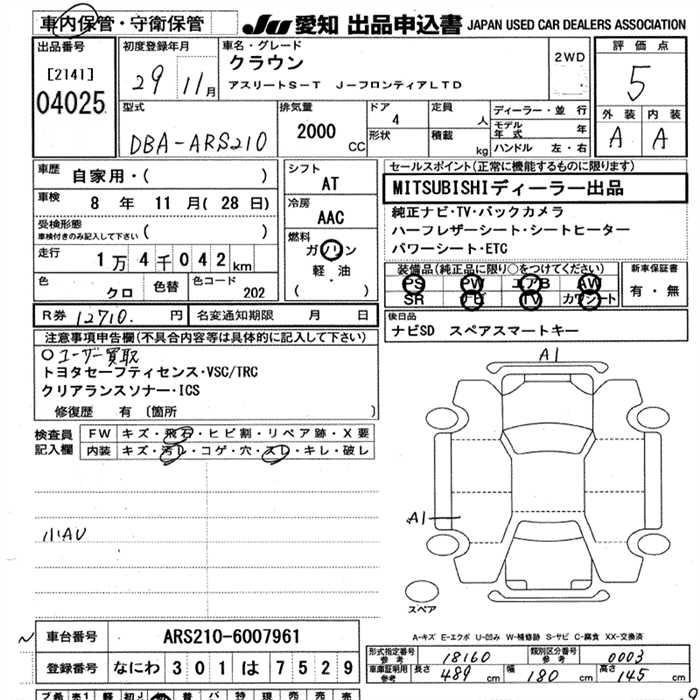 車内保管・守衛保管
JU 愛知 出品申込書 JAPAN USED CAR DEALERS ASSOCIATION
出品番号
[2141]
04025
初度登録年月
29 11月
車名・グレード
クラウン
アスリートS-T J-フロンティアLTD
2WD
評価点
5
外装 内装
A A
型式
DBA-ARS210
排気量
2000
CC
ドア
4
形状
定員
人
積載
kg
ディーラー・並行
モデル年式 年
ハンドル 左・右
車歴
自家用・( )
車検
8 年 11 月(28日)
受検形態
車検付きのみ記入して下さい ( )
走行
1万4千042km
色
クロ
色替
色コード
202
シフト
AT
冷房
AAC
燃料
ガソリン
軽・油
( )
セールスポイント(正常に機能するものに限ります)
MITSUBISHIディーラー出品
純正ナビ・TV・バックカメラ
ハーフレザーシート・シートヒーター
パワーシート・ETC
装備品(純正品に限り○をつけてください)
PS PW エアB AW
SR ナビ TV カワシート
新車保証書
有・無
R券 12710. 円
名変通知期限 月 日
後日品
ナビSD スペアスマートキー
注意事項申告欄(不具合内容等は具体的に記入して下さい)
○ユーザー買取
トヨタセーフティセンス・VSC/TRC
クリアランスソナー・ICS
修復歴 有 〔箇所 〕
検査員記入欄
FW キズ・飛石・ヒビ割・リペア跡・X要
内装 キズ・汚レ・コゲ・穴・スレ・キレ・破レ
小AU
A1
A1
スペア
A-キズ E-エクボ U-凹み W-補修跡 S-サビ C-腐食 XX-交換済
車台番号
ARS210-6007961
登録番号
なにわ 301 は 7529
形式指定番号
参考
18160
類別区分番号
参考
0003
車庫証明用
参考
長さ 489 cm
幅 180 cm
高さ 145 cm